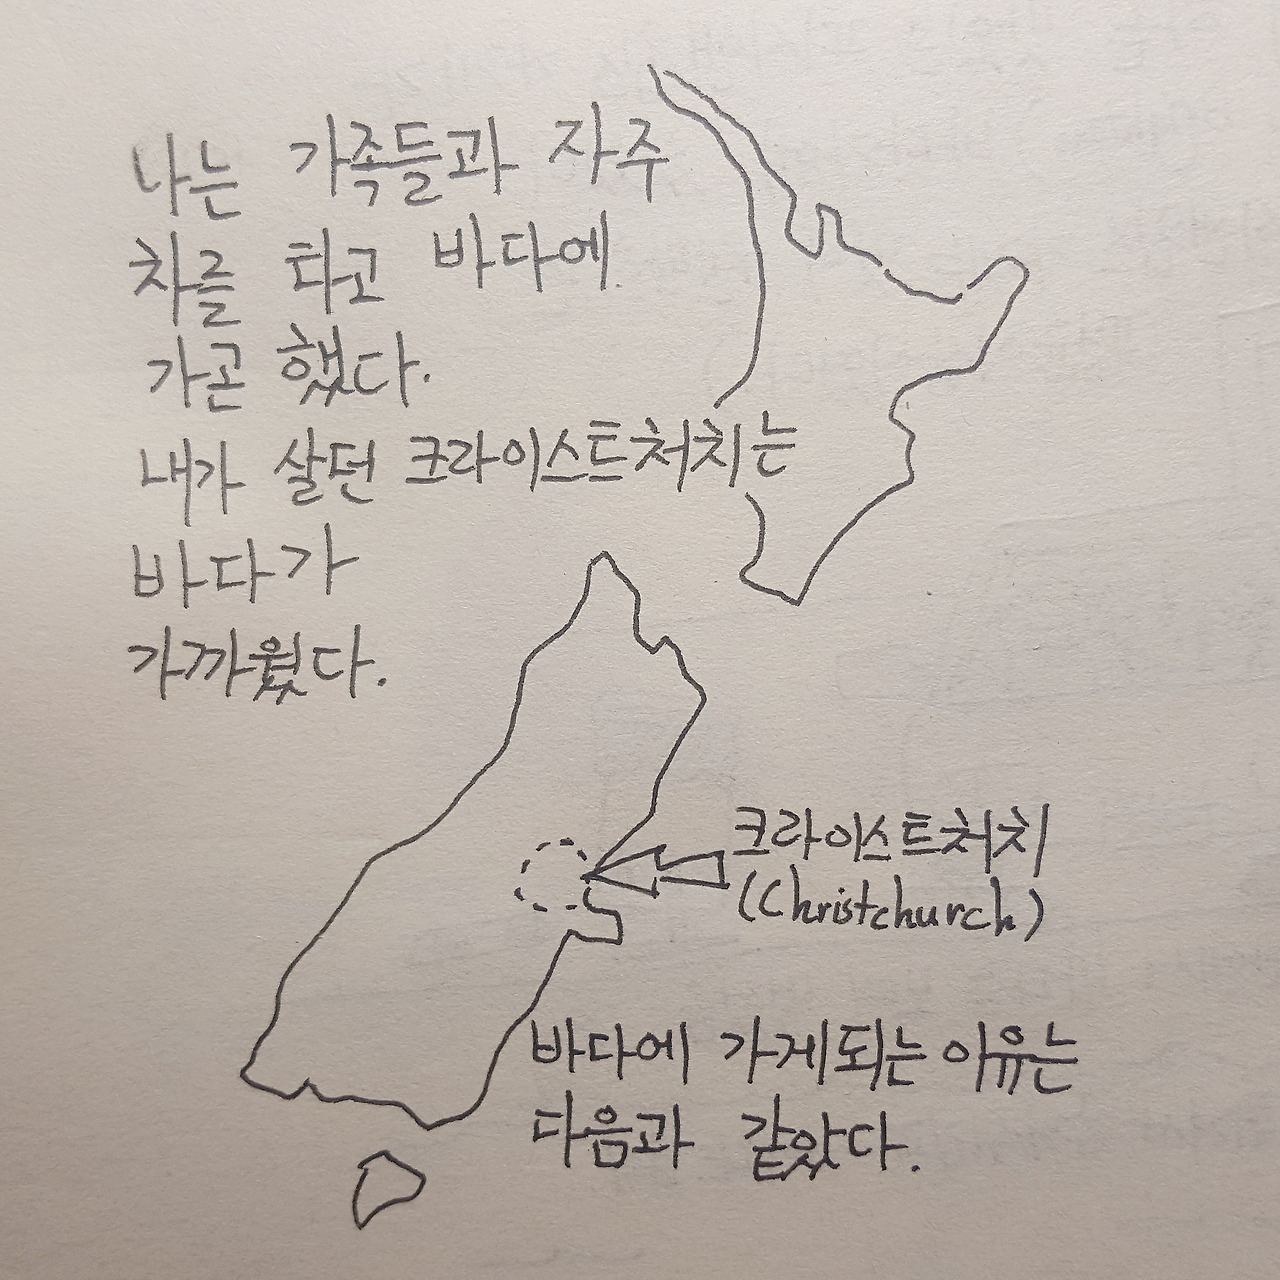 나는 가족들과 자주
차를 타고 바다에
가곤 했다.
내가 살던 크라이스트처치는
바다가
가까웠다.
크라이스트처치
(Christchurch)
바다에 가게되는 이유는
다음과 같았다.